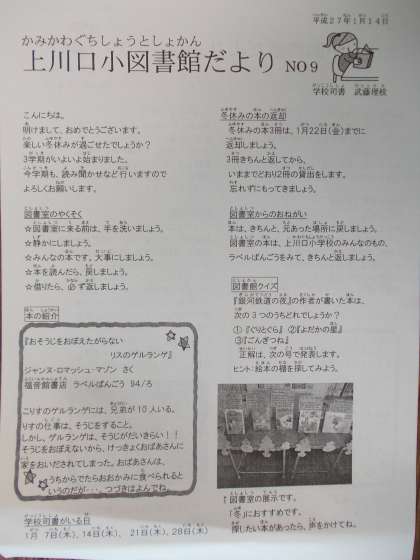 平成27年1月14日
かみかわぐちしょうとしょかん
上川口小図書館だより NO9
学校司書 武藤理枝
こんにちは。
明けまして、おめでとうございます。
楽しい冬休みが過ごせたでしょうか？
3学期がいよいよ始まりました。
今学期も、読み聞かせなど行いますので
よろしくお願いします。
図書室のやくそく
☆図書室に来る前は、手を洗いましょう。
☆静かにしましょう。
☆みんなの本です。大事にしましょう。
☆本を読んだら、戻しましょう。
☆借りたら、必ず返しましょう。
本の紹介
『おそうじをおぼえたがらない
リスのゲルランゲ』
ジャンヌ・ロッシュ・マゾン さく
福音館書店 ラベルばんごう 94/5
こりすのゲルランゲには、兄弟が10人いる。
りすの仕事は、そうじをすること。
しかし、ゲルランゲは、そうじがだいきらい！！
そうじをおぼえないから、けっきょくおばあさんに
家をおいだされてしまった。おばあさんは、
うちからでたらおおかみに食べられると
いうのだが・・・、つづきはよんでね。
学校司書がいる日
1月 7日(木),14日(木), 21日(木),28日(木)
冬休みの本の返却
冬休みの本3冊は、1月22日(金)までに
返却しましょう。
3冊きちんと返してから、
いままでどおり2冊の貸出をします。
忘れずにもってきましょう。
図書室からのおねがい
本は、きちんと、元あった場所に戻しましょう。
図書室の本は、上川口小学校のみんなのもの、
ラベルばんごうをみて、きちんと戻しましょう。
図書館クイズ
『銀河鉄道の夜』の作者が書いた本は、
次の3つのうちどれでしょうか？
①『ぐりとぐら』 ②『よだかの星』
③『ごんぎつね』
正解は、次の号で発表します。
ヒント：絵本の棚を探してみよう。
↑図書室の展示です。
「冬」におすすめです。
探したい本があったら、声をかけてね。